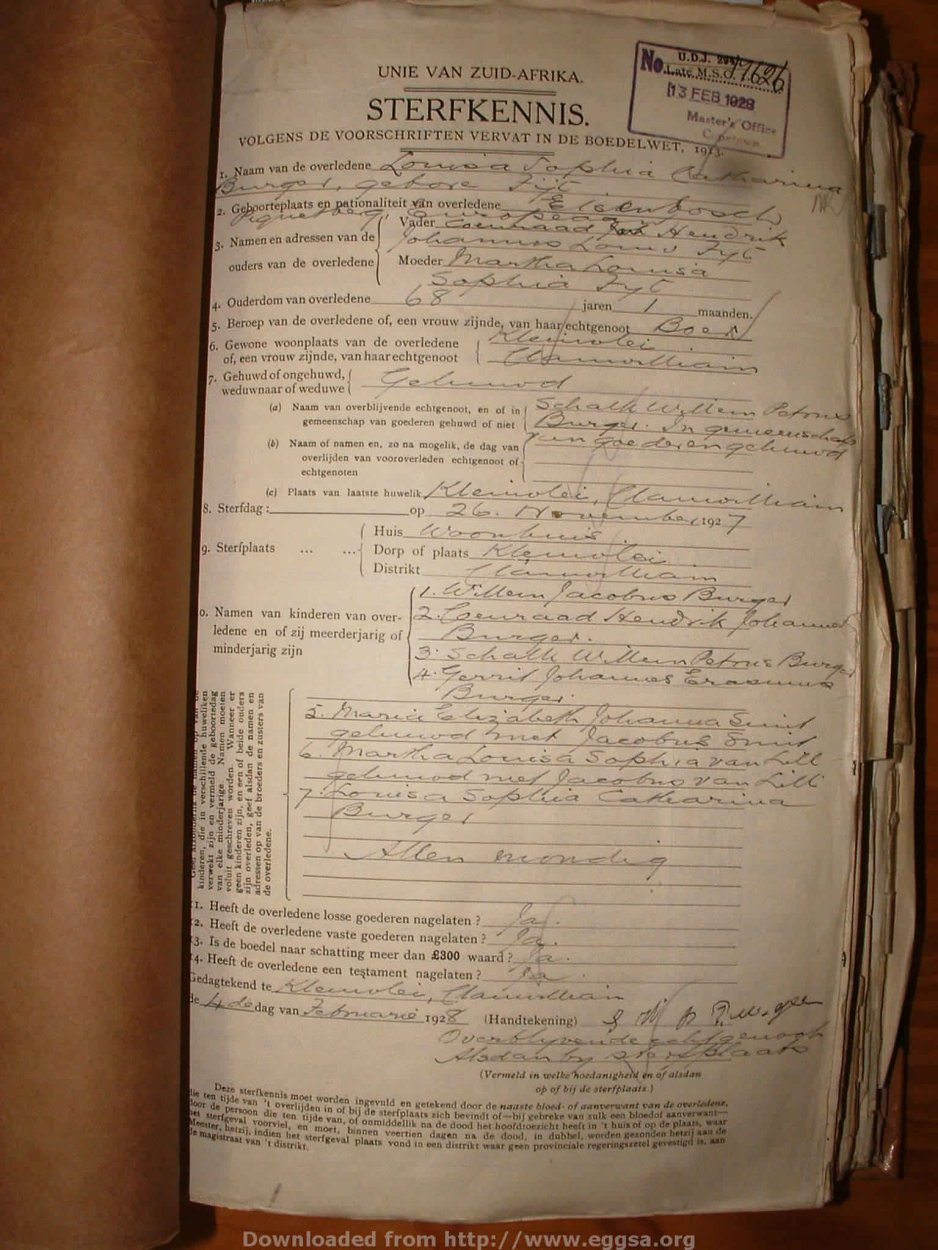 UNIE VAN ZUID-AFRIKA.
STERFKENNIS.
VOLGENS DE VOORSCHRIFTEN VERVAT IN DE BOEDELWET, 1913.
No. U.D.J.
Late M.S.C. 17626
13 FEB 1928
Master's Office
1. Naam van de overledene Louisa Sophia Catharina
Burger, gebore Zijt
2. Geboorteplaats en nationaliteit van overledene Elsenbosch
Piquetberg, Europeaan
3. Namen en adressen van de ouders van de overledene
Vader Coenraad Hendrik
Johannes Louis Zijt
Moeder Martha Louisa
Sophia Zijt
4. Ouderdom van overledene 68 jaren 1 maanden.
5. Beroep van de overledene of, een vrouw zijnde, van haar echtgenoot Boer
6. Gewone woonplaats van de overledene of, een vrouw zijnde, van haar echtgenoot
Kleinvlei
Clanwilliam
7. Gehuwd of ongehuwd, weduwnaar of weduwe Gehuwd
(a) Naam van overblijvende echtgenoot, en of in gemeenschap van goederen gehuwd of niet
Schalk Willem Petrus
Burger. In gemeenschap
van goederen gehuwd
(b) Naam of namen en, zo na mogelik, de dag van overlijden van vooroverleden echtgenoot of echtgenoten
(c) Plaats van laatste huwelik Kleinvlei, Clanwilliam
8. Sterfdag: op 26. November 1927
9. Sterfplaats ... ...
Huis Woonhuis
Dorp of plaats Kleinvlei
Distrikt Clanwilliam
0. Namen van kinderen van overledene en of zij meerderjarig of minderjarig zijn
1. Willem Jacobus Burger
2. Coenraad Hendrik Johannes
Burger.
3. Schalk Willem Petrus Burger
4. Gerrit Johannes Erasmus
Burger.
5. Maria Elizabeth Johanna Smit
gehuwd met Jacobus Smit
6. Martha Louisa Sophia van Lill
gehuwd met Jacobus van Lill
7. Louisa Sophia Catharina
Burger
Allen mondig
kinderen, die in verschillende huweliken
verwekt zijn en vermeld de geboortedag
van elke minderjarige. Namen moeten
voluit geschreven worden. Wanneer er
geen kinderen zijn, en een of beide ouders
zijn overleden, geef alsdan de namen en
adressen op van de broeders en zusters van
de overledene.
1. Heeft de overledene losse goederen nagelaten? Ja.
2. Heeft de overledene vaste goederen nagelaten? Ja.
3. Is de boedel naar schatting meer dan £300 waard? Ja.
4. Heeft de overledene een testament nagelaten? Ja
Gedagtekend te Kleinvlei, Clanwilliam
de 4de dag van Februarie 1928 (Handtekening) S W P Burger
Overblyvende echtgenoot
Alsdan by sterfplaats
(Vermeld in welke hoedanigheid en of alsdan
op of bij de sterfplaats.)
Deze sterfkennis moet worden ingevuld en getekend door de naaste bloed- of aanverwant van de overledene,
die ten tijde van 't overlijden in of bij de sterfplaats zich bevindt of—bij gebreke van zulk een bloed of aanverwant—
door de persoon die ten tijde van, of onmiddellik na de dood het hoofdtoezicht heeft in 't huis of op de plaats, waar
het sterfgeval voorviel, en moet, binnen veertien dagen na de dood, in dubbel, worden gezonden hetzij aan de
Meester, hetzij, indien het sterfgeval plaats vond in een distrikt waar geen provinciale regeringszetel gevestigd is, aan
de magistraat van 't distrikt.
Downloaded from http://www.eggsa.org